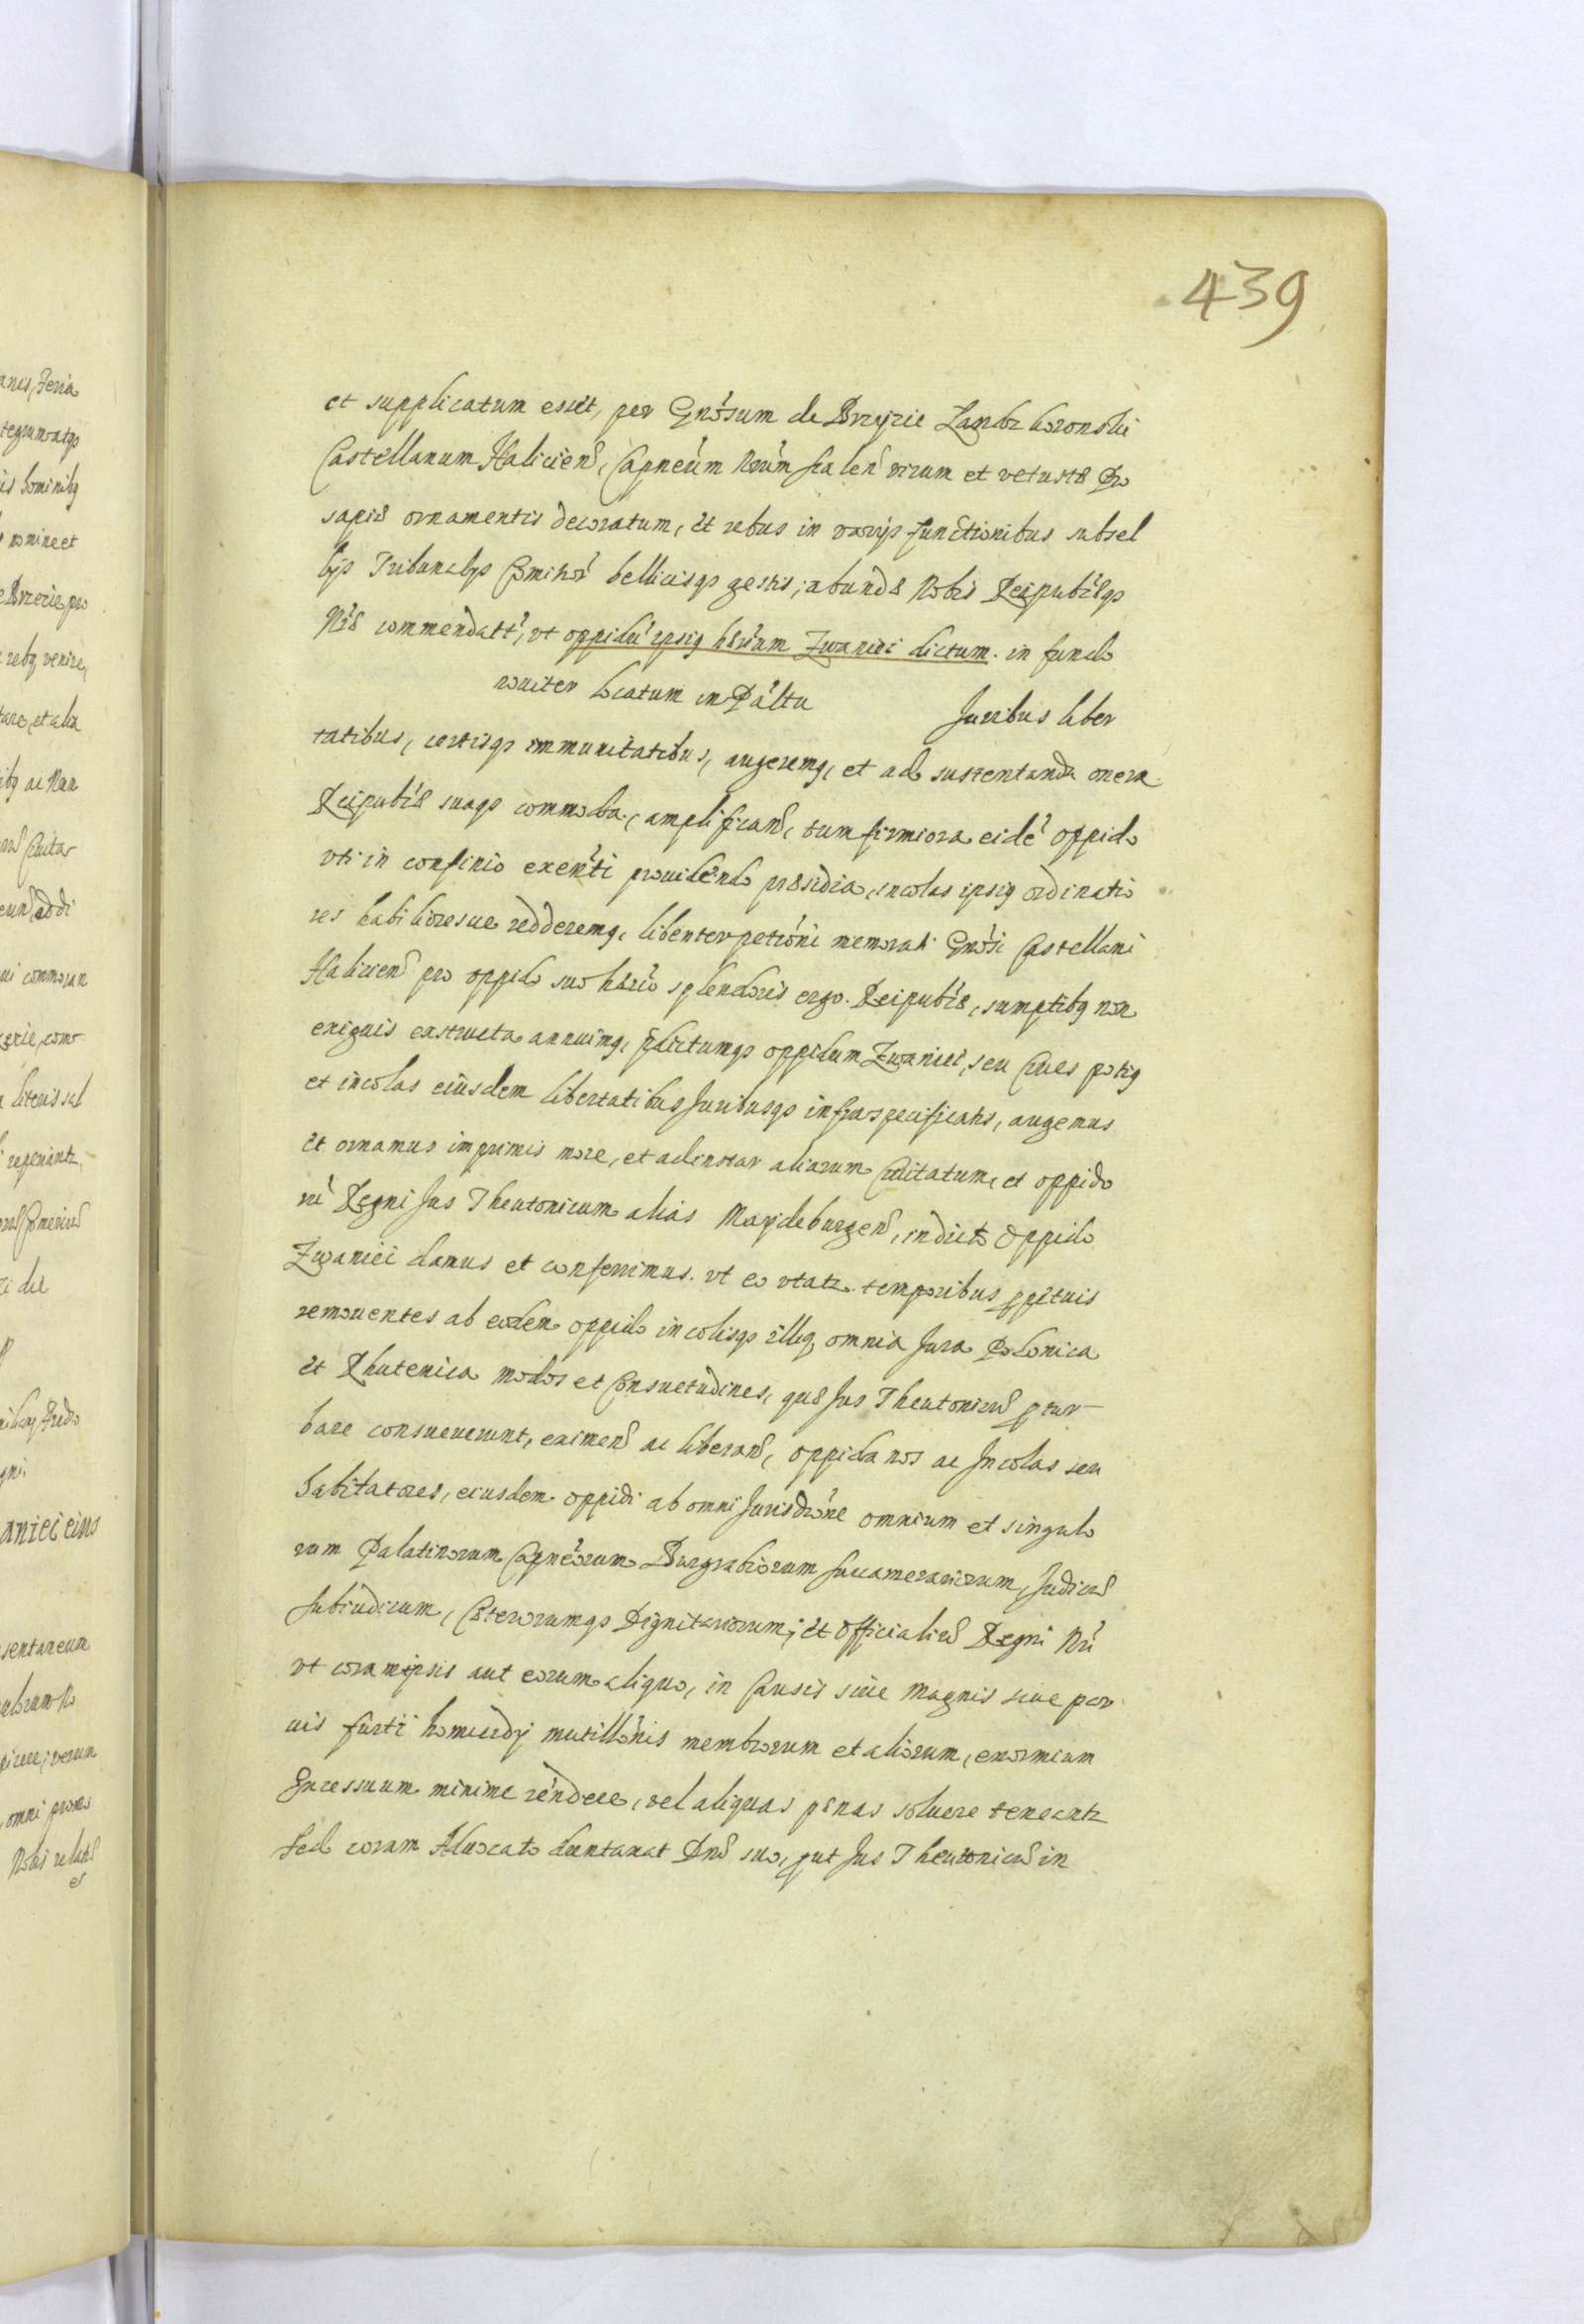 439
et supplicatum esset, per Gnosum de Brzezie Lanczkoronski
Castellanum Halicien, Capneum Nrum Scalen virum et vetustæ Pro
sapiæ ornamentis decoratum, et rebus in varijs functionibus subsel
lijs Tribunalijs Comitior bellicisqȝ gestis, abunde Nobis Reipublæqȝ
Nræ commendatt, vt oppidu ipsiȝ hærium Zwaniec dictum. in fundo
nouiter locatum in Paltu Juribus liber
tatibus, certisqȝ immunitatibus, augeremȝ, et ad sustentanda onera
Reipublæ suaqȝ commoda, amplifican, tum firmiora eide oppido
vti in confinio exenti prouidendo præsidia, incolas ipsiȝ ordinatio
res habilioresue redderemȝ, libenter petioni memorati Gnosi Castellani
Halicien pro oppido suo hærio splendoris ergo Reipublæ, sumptibȝ non
exiguis exstructa annuimȝ, pdictumqȝ oppidum Zwaniec, seu Ciues potiȝ
et incolas eiusdem libertatibus Juribusqȝ infraspecificatis, augemus
et ornamus imprimis more, et ad instar aliarum Ciuitatum, et oppido
ru Regni Jus Theutonicum alias Maydeburgen, in dicto Oppido
Zwaniec damus et conferimus. vt eo vtatz temporibus ppetuis
remouentes ab eodem oppido incolisqȝ illiȝ, omnia Jura Polonica
et Rhutenica modos et Consuetudines, quæ Jus Theutonicu ptur-
bare consueuerunt, eximen ac liberan, oppidanos ac Incolas seu
habitatores, eiusdem oppidi ab omni Jurisdione omnium et singulo
rum Palatinorum Capneorum Burgrabiorum Succamerariorum, Judicu
Subiudicum, Cæterorumqȝ Dignitariorum, et Officialiu Regni Nri
vt coram ipsis aut eorum aliquo, in Causis siue magnis siue par
uis furti homicidij mutillonis membrorum et aliorum, enormium
Excessuum minime rendere, vel aliquas pænas soluere teneantz
sed coram Aduocato duntaxat Dno suo, put Jus Theutonicu in